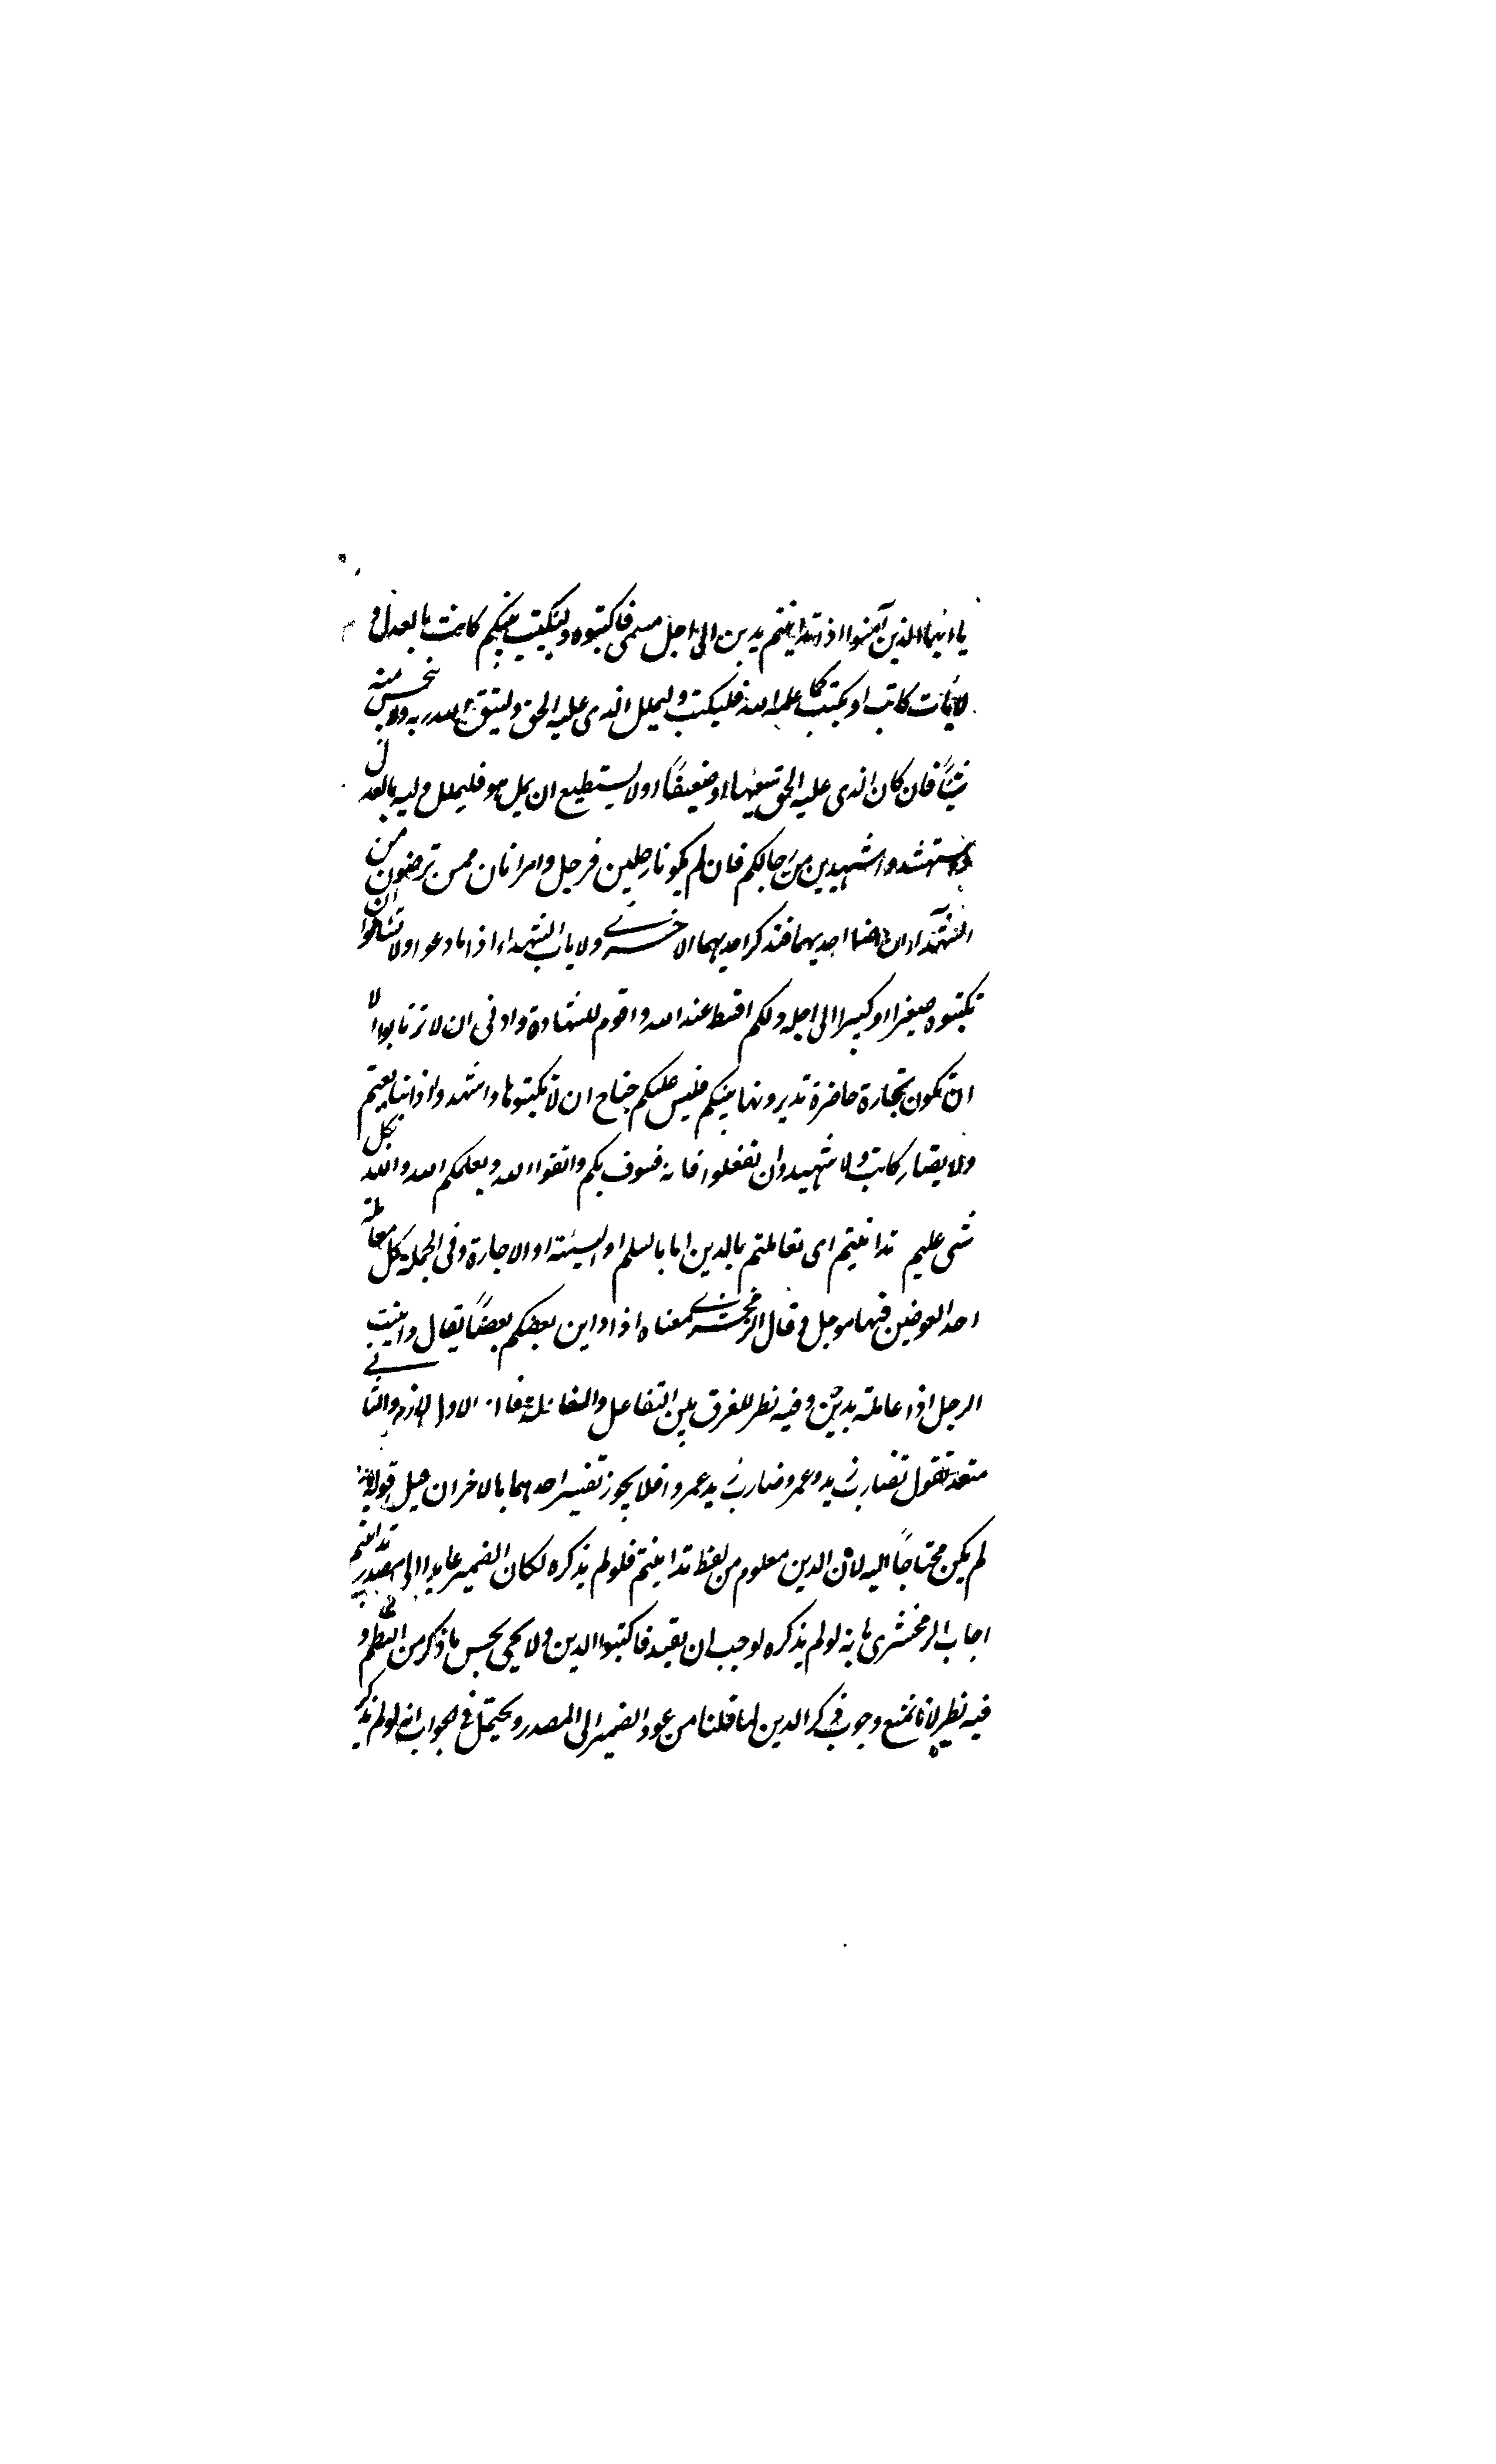 يا ايها الذين آمنوا اذا تداينتم بدين الى اجل مسمى فاكتبوه وليكتب بينكم كاتب بالعدل و
لا يأب كاتب ان يكتب كما علمه الله فليكتب وليملل الذى عليه الحق وليتق الله ربه ولا يبخس منه
شيئًا فان كان الذى عليه الحق سفيها او ضعيفًا او لا يستطيع ان يمل هو فليملل وليه بالعدل
واستشهدوا شهيدين من رجالكم فان لم يكونا رجلين فرجل وامراتان ممن ترضون من
الشهدآء ان تضل احديهما فتذكر احديهما الاخرى ولا ياب الشهداء اذا ما دعوا ولا تسئموا ان
تكتبوه صغيرا او كبيرا الى اجله ذلكم اقسط عند الله واقوم للشهادة وادنى ان لا ترتابوا الا
ان تكون تجارة حاضرة تديرونها بينكم فليس عليكم جناح ان لا تكتبوها واشهدوا اذا تبايعتم
ولا يضار كاتب ولا شهيد وان تفعلوا فانه فسوق بكم واتقوا الله ويعلمكم الله والله بكل
شى عليم تداينتم اى تعاملتم بالدين اما بالسلم او النسيئة او الاجارة وفى الجملة كل معاملة
احد العوضين فيها موجل وقال الزمخشرى معناه اذا داين بعضكم بعضًا يقال داينت
الرجل اذا عاملته بدين وفيه نظر للفرق بين التفاعل والمفاعلة فان الاول لازم والثانى
متعد تقول تضارب زيد وعمرو ضارب زيد عمروا فلا يجوز تفسير احدهما بالاخر ان قيل قوله
لم يكن محتاجًا اليه لان الدين معلوم من لفظ تداينتم فلو لم يذكره لكان الضمير عايدا الى مصدر تداينتم
اجاب الزمخشرى بانه لو لم يذكره لوجب ان يقيد فاكتبوا الدين ولا يجى بحسن ما ذكر من النظم و
فيه نظر لانا نمنع وجوب ذكر الدين لما قلنا من عود الضمير الى المصدر ويحتمل فى الجواب انه لو لم يذكر